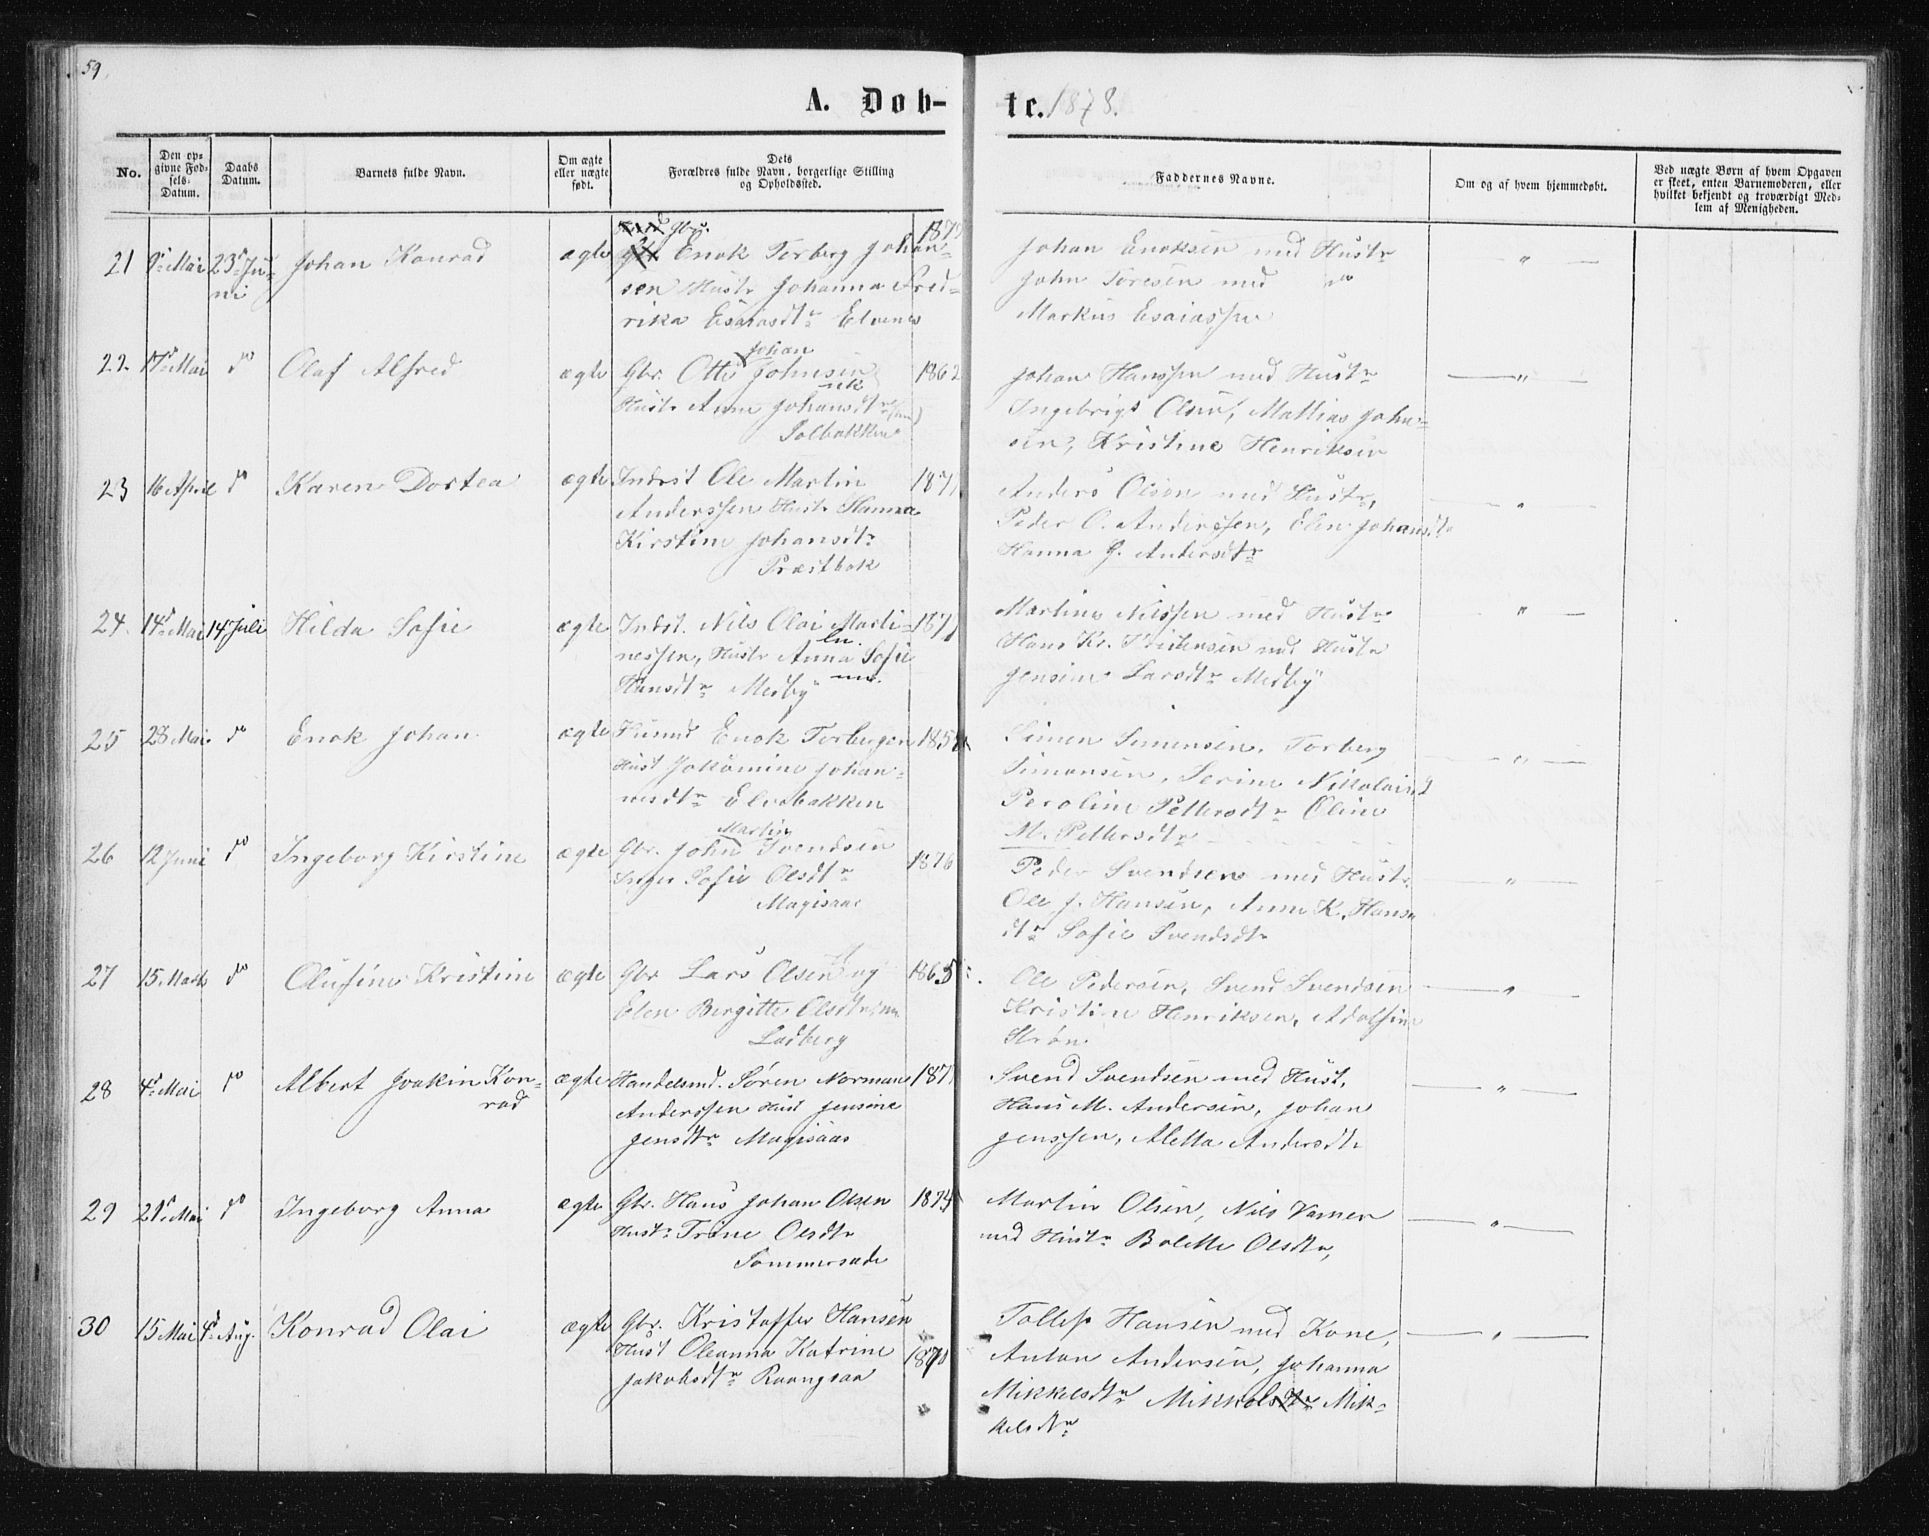 59.
A. Døb-
te. 1878.
No.
Den op-
givne Fød-
sels-
Datum.
Daabs
Datum.
Barnets fulde Navn.
Om ægte
eller uægte
født.
Dets
Forældres fulde Navn, borgerlige Stilling
og Opholdssted.
Faddernes Navne.
Om og af hvem hjemmedøbt.
Ved uægte Børn af hvem Opgaven
er skeet, enten Barnemoderen, eller
hvilket bekjendt og troværdigt Med-
lem af Menigheden.
21 9de Mai 23de Ju-
ni
Johan Konrad
ægte
Gbr.
Enok Torberg Johan-
sen Hustr Johanna Fred-
rika Esaiasdtr Elvenes
Johan Enoksen med Hustr
John Toresen med do
Markus Esaiassen
"
22. 17de Mai do Olaf Alfred
ægte
Johan
Gbr. Otto Johnsen 1862
Hustr Anne Johansdtr
Solbakken
Johan Hanssen med Hustr
Ingebrigt Olsen, Mathias John-
sen, Kristine Henriksen
"
23 16 April do Karen Dortea
ægte
Indst Ole Martin
Anderssen Hustr Hanna
Kirstine Johansdtr
Præstbak
Anders Olsen med Hustr,
Peder O. Anderssen, Elen Johansdtr
Hanna J. Andersdtr
"
24. 14de Mai 14 Juli Hilda Sofie
ægte
Indst. Nils Olai Marti-
nessen, Hustr Anna Sofie
Hansdtr Medby
Martinus Nilssen med Hustr
Hans Kr. Pedersen med Hustr
Jensine Larsdtr Medby
"
25 28 Mai do Enok Johan
ægte
Enok Torbergsen
Hust Jakomine Johan-
nesdtr Elvebakken
Simon Simonsen, Torberg
Simonsen, Serine Nikolaisd
Peroline Pettersdtr Oline
M. Pettersdtr
"
26 12 Juni do Ingeborg Kirstine
ægte
Martin
Gbr. John Svendsen
Inger Sofie Olsdtr 1876
Magisaas
Peder Svendsen med Hustr.
Ole J. Hansen, Anne K. Hans
dtr Sofie Svendsdtr
"
27 15 Marts do Olufine Kristine
ægte
Gbr Lars Olsen og 1865
Elen Birgitte Olsdtr
Ladberg
Ole Pedersen, Svend Svendsen
Kristine Henriksen, Adolfine
Strøm
"
28 4de Mai do Albert Joakin Kon-
rad
ægte
Handelsmd. Søren Norman
Anderssen Hust Jensine
Jensdtr Magisaas
Svend Svendsen med Hust,
Hans M. Andersen, Johan
Jenssen, Aletta Andersdtr
"
29 21de Mai do Ingeborg Anna
ægte
Gbr. Hans Johan Olsen 1874
Hustr Trine Olsdtr
Sommersæde
Martin Olsen, Nils Vamen
med Hustr Bolette Olsdtr,
"
30 15 Mai 4de Aug. Konrad Olai
ægte
Gbr. Kristoffer Hansen
Hust Oleanna Katrine
Jakobsdtr Raangsaa 1870
Tollef Hansen med Kone,
Anton Andersen, Johanna
Mikkelsdtr Mikkelsdtr Mik-
kelsdtr
"